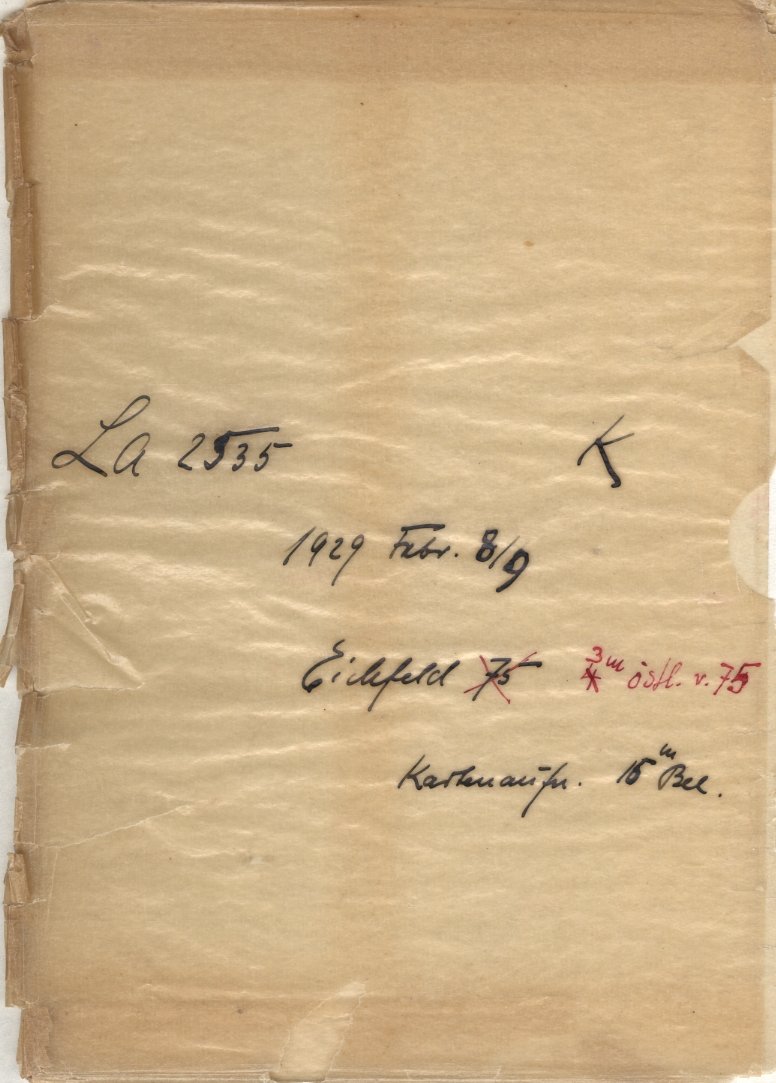 La 2535 K
1929 Febr. 8/9
Eichfeld 75 3 m östl. v. 75
Kartenaufn. 15 m Bel.